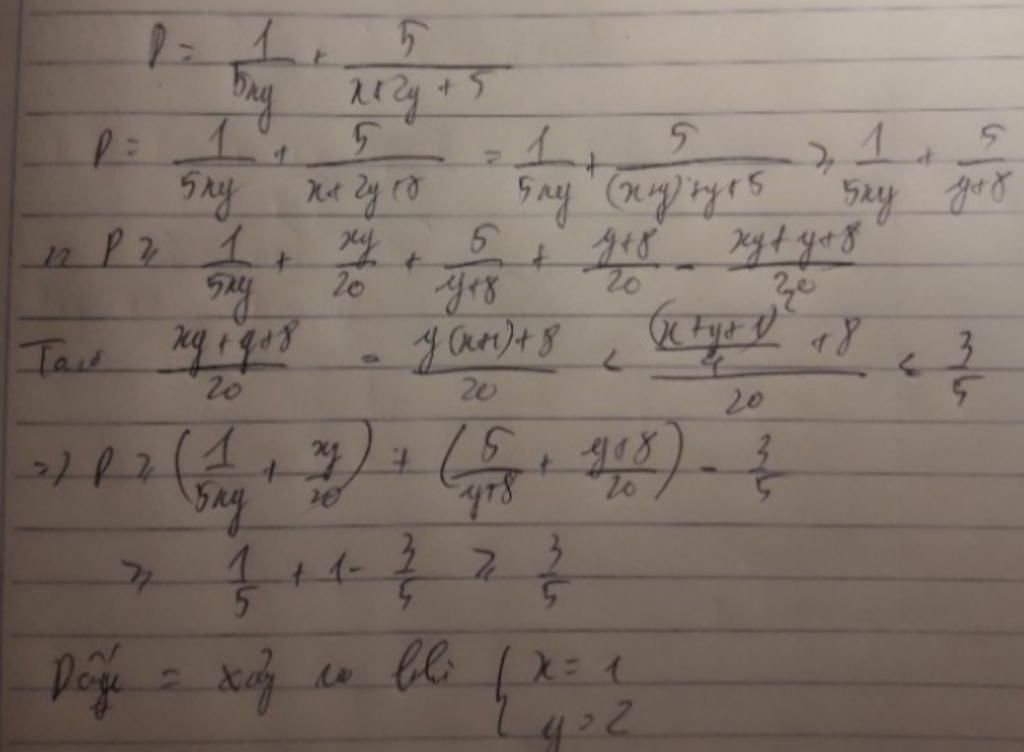 P = 1/(5xy) + 5/(x+2y+5)
P = 1/(5xy) + 5/(x+2y+8) = 1/(5xy) + 5/((x+y)+y+5) ≥ 1/(5xy) + 5/(y+8)
P ≥ 1/(5xy) + xy/20 + 5/(y+8) + (y+8)/20 - (xy+y+8)/20
Ta có (xy+y+8)/20 = (y(x+1)+8)/20 ≤ ((x+y+1)²/4 + 8)/20 ≤ 3/5
=> P ≥ (1/(5xy) + xy/20) + (5/(y+8) + (y+8)/20) - 3/5
≥ 1/5 + 1 - 3/5 ≥ 3/5
Dấu = xảy ra khi { x = 1
y = 2